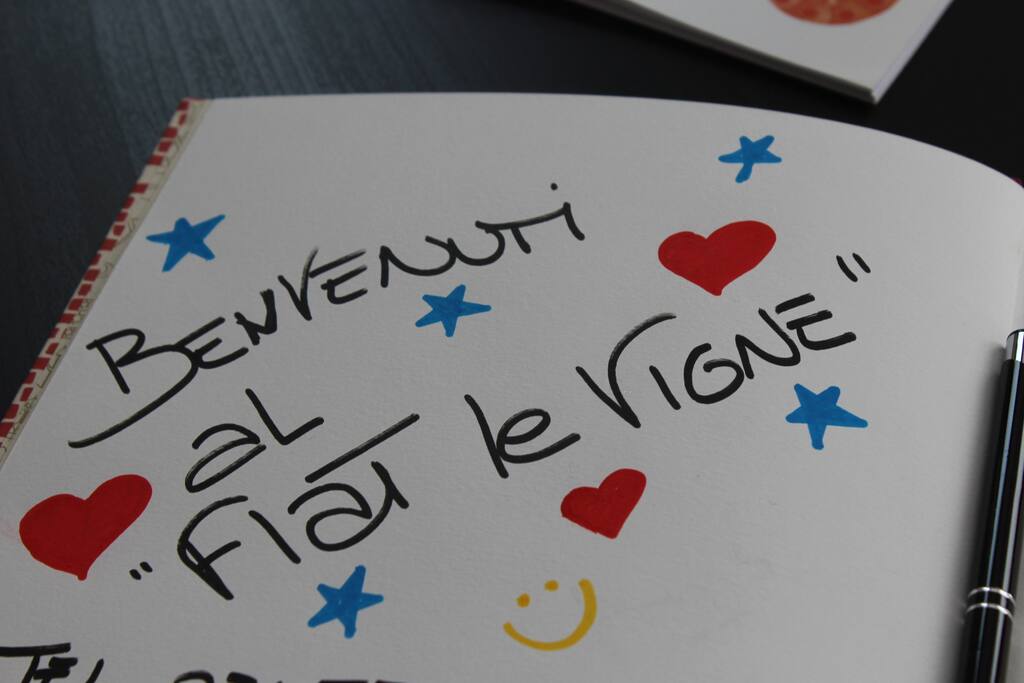 BENVENUTI
aL
"Flat le VIGNE"
TEL